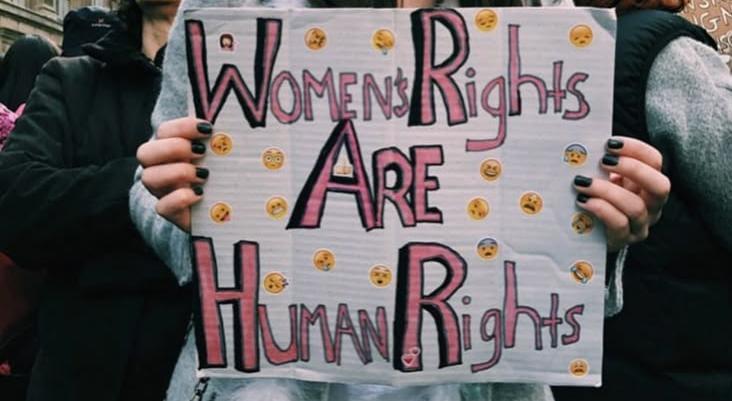 WOMEN'S Rights
ARE
HUMAN Rights